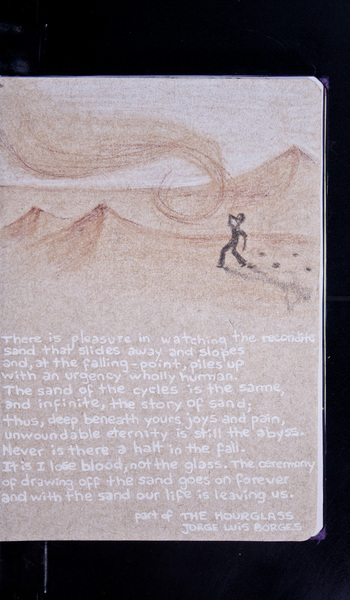 There is pleasure in watching the recondite
sand that slides away and slopes
and, at the falling-point, piles up
with an urgency wholly human.
The sand of the cycles is the same,
and infinite, the story of sand;
thus, deep beneath yours joys and pain,
unwoundable eternity is still the abyss.
Never is there a halt in the fall.
It is I lose blood, not the glass. The ceremony
of drawing off the sand goes on forever
and with the sand our life is leaving us.
part of THE HOURGLASS
JORGE LUIS BORGES